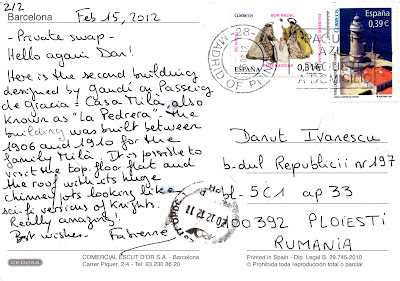 2/2
Barcelona
Feb 15, 2012
- Private swap -
Hello again Dan!
Here is the second building
designed by Gaudí on Passeig
de Gracia - Casa Milà, also
known as "La Pedrera". The
building was built between
1906 and 1910 for the
family Milà. It is possible to
visit the top floor flat and
the roof with its huge
chimney pots looking like
sci-fi versions of knights.
Really amazing!
Best wishes - Fabienne
BON NADAL
España
0,31€
España
0,39 €
MADRID
Danut Ivanescu
b-dul Republicii nr 197
bl-5C1 ap 33
100392 PLOIESTI
RUMANIA
CEDOSA
COMERCIAL ESCUT D'OR S.A. - Barcelona
Carrer Piquer, 2-4 - Tel: 93 230 86 20
Printed in Spain - Dip. Legal B. 29.745-2010
© Prohibida toda reproducción total o parcial